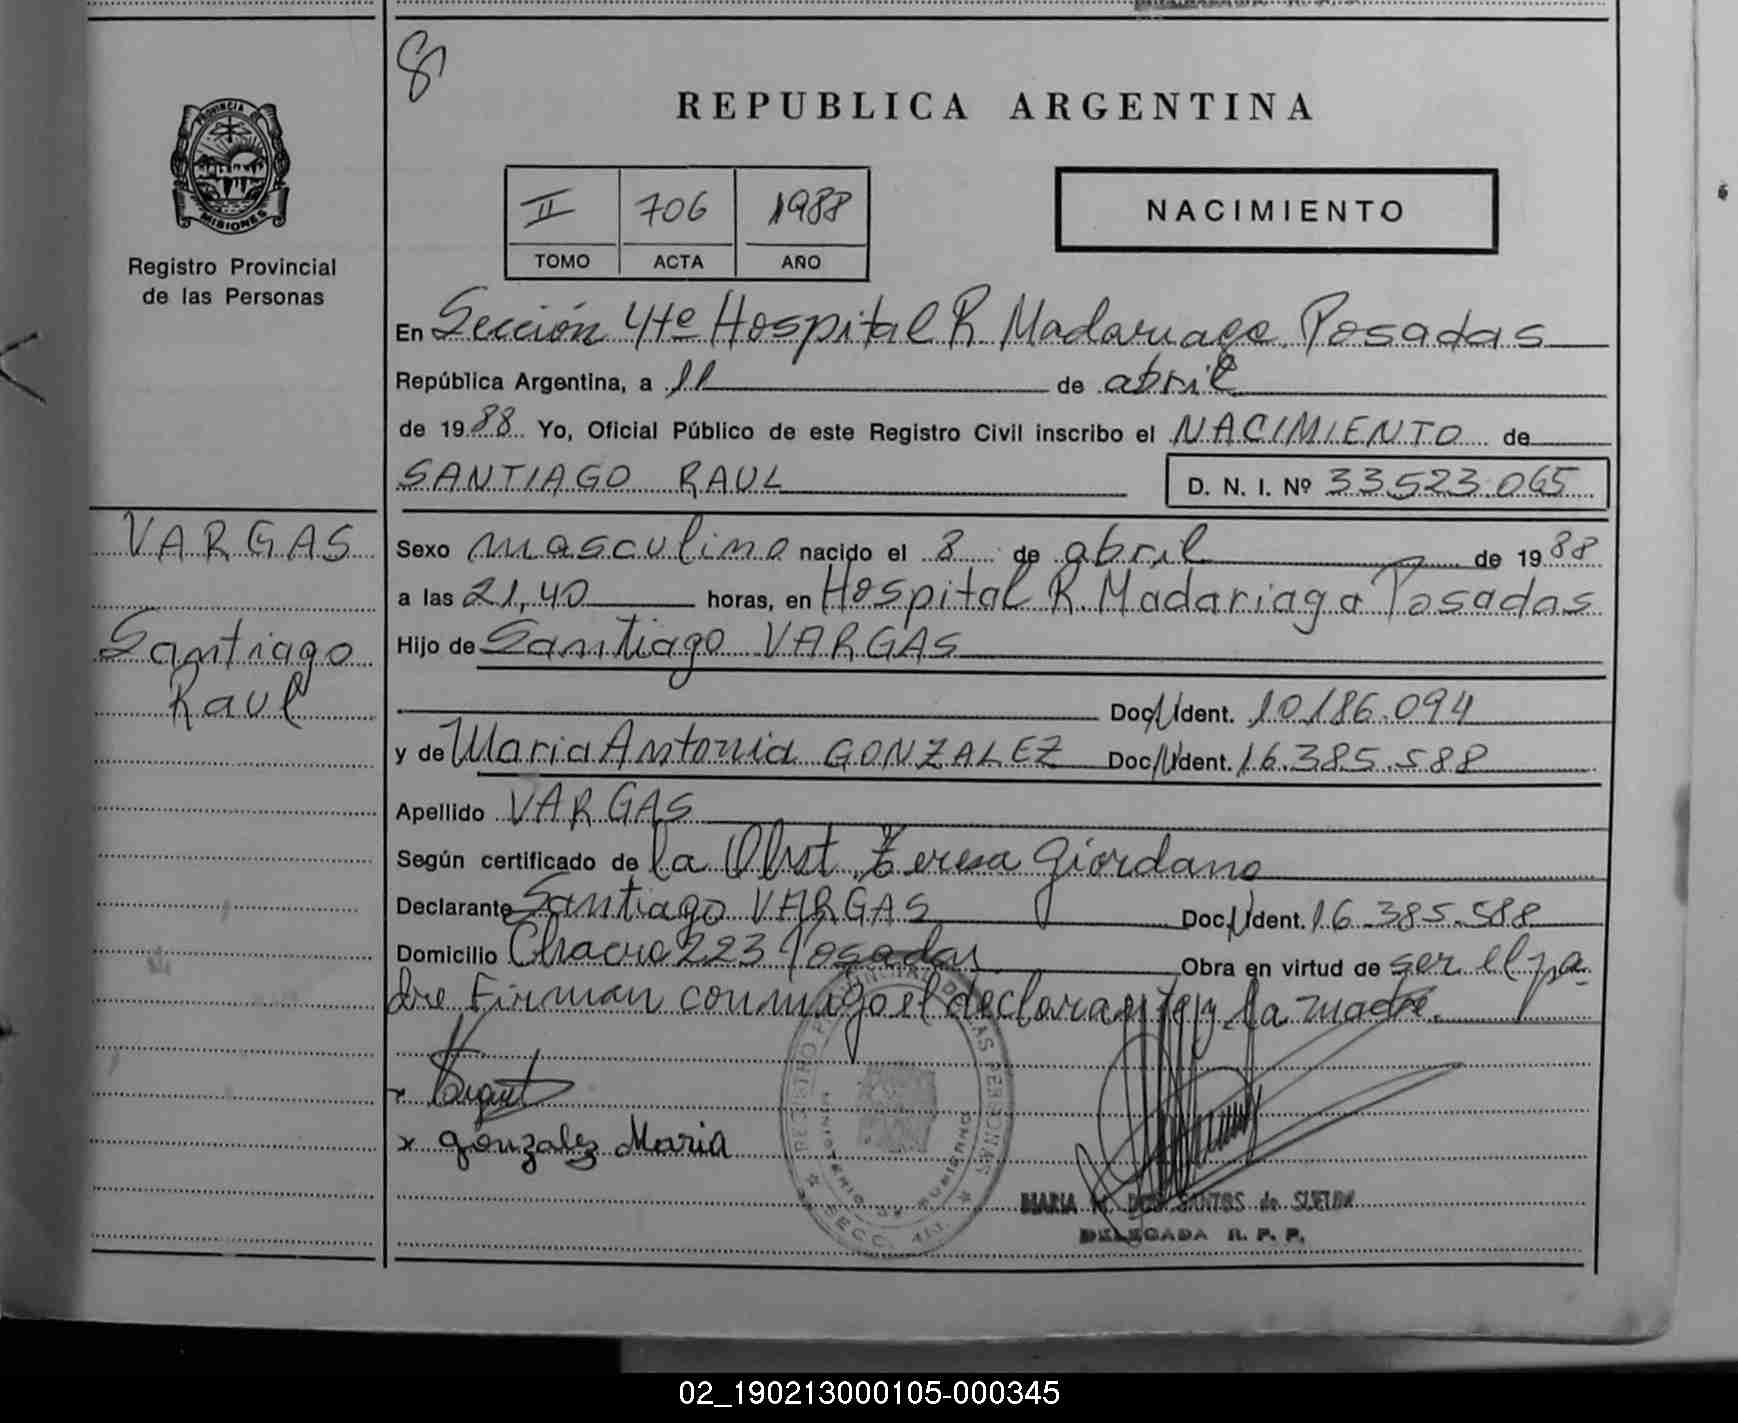 8
REPUBLICA ARGENTINA
PROVINCIA DE
MISIONES
Registro Provincial
de las Personas
II 706 1988
TOMO ACTA AÑO
NACIMIENTO
En Sección 4te Hospital R. Madariaga. Posadas
República Argentina, a 11 de abril
de 1988 Yo, Oficial Público de este Registro Civil inscribo el NACIMIENTO de
SANTIAGO RAUL D. N. I. Nº 33.523.065
VARGAS
Santiago
Raul
Sexo masculino nacido el 8 de abril de 1988
a las 21,40 horas, en Hospital R. Madariaga Posadas
Hijo de Santiago VARGAS
Doc. Ident. 10.186.094
y de Maria Antonia GONZALEZ Doc. Ident. 16.385.588
Apellido VARGAS
Según certificado de la Obst. Teresa Giordano
Declarante Santiago VARGAS Doc. Ident. 16.385.588
Domicilio Chacra 223 Posadas Obra en virtud de ser el pa-
dre Firman conmigo el declarante y la madre.
x
x Gonzalez Maria
REGISTRO PROVINCIAL DE LAS PERSONAS
MINISTERIO DE GOBIERNO
SECC. 4ta.
MARIA DOS SANTOS de
DELEGADA R. P. P.
02_190213000105-000345